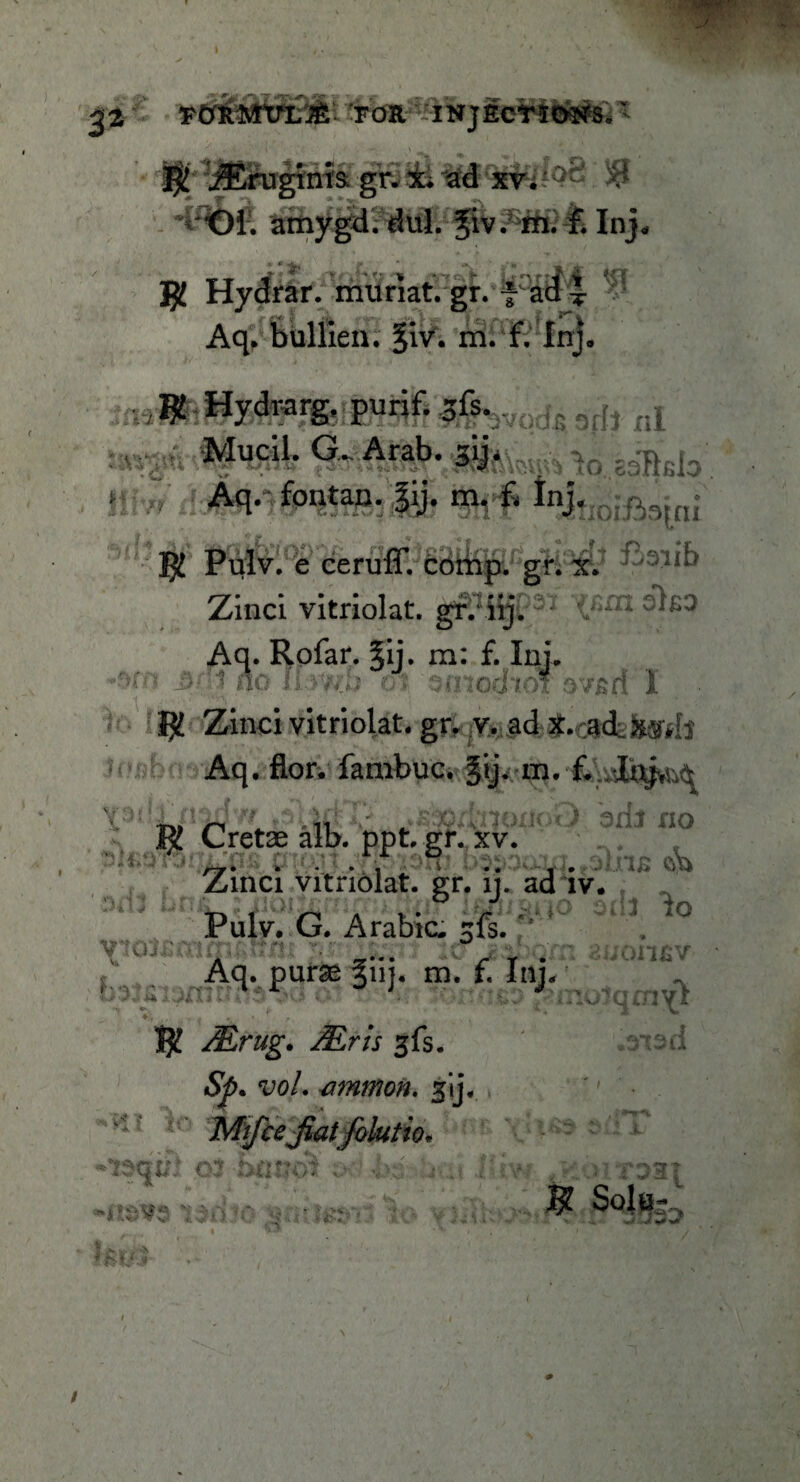 32 FORMULÆ FOR INJECTIONS.
℞ Æruginis gr. x. ad xv.
Ol. amygd. dul. ℥iv. m. f. Inj.
℞ Hydrar. muriat. gr. ad
Aq. bullien. ℥iv. m. f. Inj.
℞ Hydrarg. purif. ʒſs.
Mucil. G. Arab. ʒij.
Aq. fontan. ℥ij. m. f. Inj.
℞ Pulv. e ceruſſ. comp. gr. x.
Zinci vitriolat. gr. iij.
Aq. Roſar. ℥ij. m: f. Inj.
℞ Zinci vitriolat. gr. v. ad x. ad
Aq. flor. ſambuc. ℥ij. m. f. Inj.
℞ Cretæ alb. ppt. gr. xv.
Zinci vitriolat. gr. ij. ad iv.
Pulv. G. Arabic. ʒſs.
Aq. puræ ℥iij. m. f. Inj.
℞ Ærug. Æris ʒſs.
Sp. vol. ammon. ʒij.
Miſce fiat ſolutio.
℞ Solu-